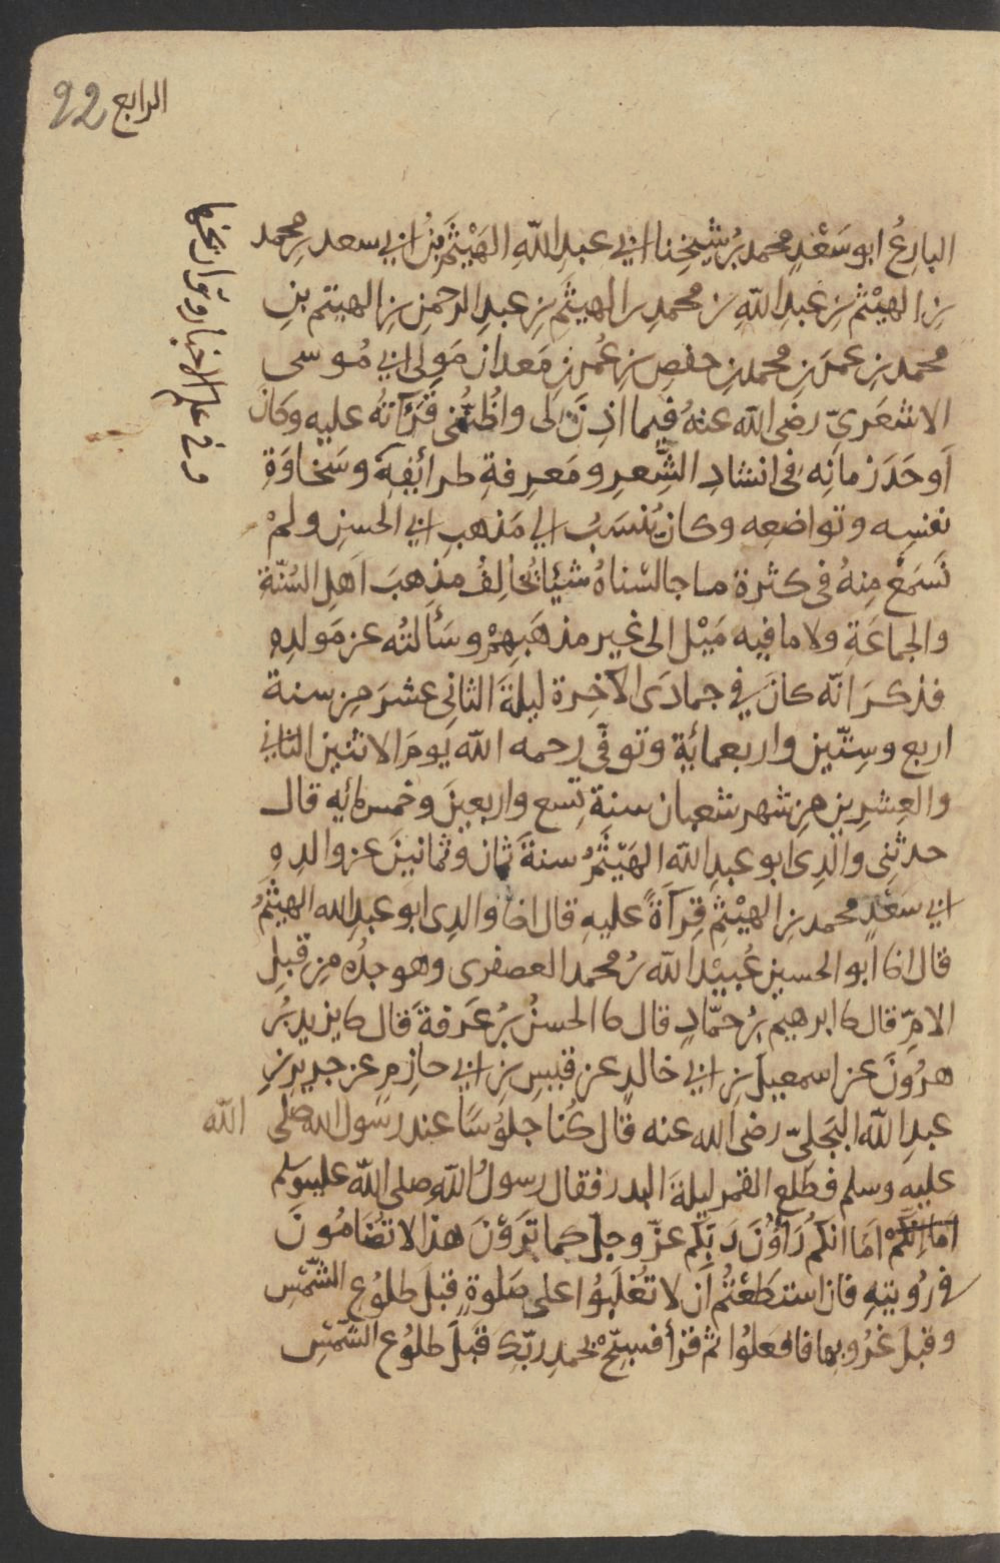 الرابع 22
البارِعُ ابو سَعْدٍ محمد بنُ شيخِنا ابي عبدِ اللهِ الهَيْثَمِ بنِ ابي سعد بنِ محمد
بنِ الهيْثم بنِ عبدِ اللهِ بن محمدِ بن الهيثَمِ بنِ عبدِ الرحمنِ بنِ الهيثم بنِ
محمد بنِ عمرَ بنِ محمدِ بنِ حفصِ بنِ عُمر بنِ مَعدان مَولى ابي مُوسى
الاشعَريّ رضى الله عنهُ فيما اذِنَ لى واظُنّنى قَرَأتهُ عليه وكانَ
اَوحَدَ زمانِه فى انشادِ الشِّعرِ ومَعرِفةِ طرائِفِهِ وسَخاوَةِ
نفسِه وتواضعِه وكان يُنسَبُ الي مَذهبِ ابي الحسنِ ولمْ
نَسمَعْ مِنهُ فى كثرة ما جالسْناهُ شيْئا يُخالِفُ مذهبَ اَهلِ السُنّةِ
والجماعَةِ ولا ما فيه مَيْل الى غير مذهَبِهِمْ وسَأَلتُه عن مَولدِهِ
فذكرَ انّه كانَ في جمادَى الآخِرة ليلةَ الثانِى عشرَ من سنة
اربع وسِتّين واربعمائِة وتوفّى رحمه الله يَومَ الاثنين الثانِي
والعِشرِين مِن شهر شعبان سنة تِسع واربعينَ وخمسمائه قال
حدثنِى والِدِى ابو عبدِ الله الهَيْثَمُ سنةَ ثمانٍ وثمانينَ عن والدِهِ
ابي سَعْدٍ محمد بنِ الهيْثمِ قِرآَةً عليهِ قال انا والدِى ابو عبدِ الله الهيثَمُ
قال انا ابو الحسين عُبيْد الله بنُ محمد العصفرى وهو جدُه مِن قبلِ
الامِّ قال نا ابرهيم بنُ حمّادٍ قال نا الحسنُ بنُ عَرفةَ قال نا يزيد بنُ
هرُونَ عن اسمعيلَ بنِ ابي خالدٍ عن قيسِ بنِ ابي حازِمٍ عن جريرِ بنِ
عبدِ اللهِ البَجَليّ رضى الله عنه قال كُنا جلوُسًا عند رسول الله صلى الله
عليه وسلم فطلعَ القمر ليلةَ البدر فقال رسولُ اللهِ صلى الله عليه وسلم
اَمَا انكُمْ اَمَا انكم رَاؤُنَ رَبّكم عزّ وجلّ كما تَروْنَ هذا لا تضَامُونَ
في رُويتِهِ فان استطَعْتُمْ اَن لا تُغلَبوُا على صَلوةٍ قبلَ طلوُعِ الشّمْسِ
وقبلَ غرُوبها فافعلوُا ثم قرأ فسبّحْ بحمدِ ربّكَ قبلَ طلوُع الشّمْسِ
و في علم الاخبار وتواريخها